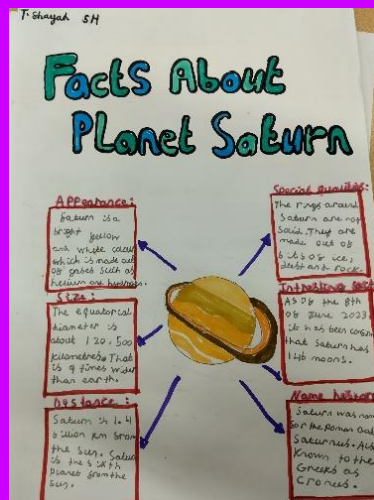 T. Shayah SH
Facts About
Planet Saturn
Appearance:
Saturn is a
bright yellow
and white colour
which is made out
of gases such as
helium and hydrogen.
Size:
The equatorial
diameter is
about 120,500
kilometres. That
is 9 times wider
than earth.
Distance:
Saturn is 1.4
billion km from
the sun. Saturn
is the sixth
planet from the
sun.
Special qualities:
The rings around
Saturn are not
Solid. They are
made out of
bits of ice,
dust and rock.
Intresting fact
As of the 8th
of June 2023,
it has been
that Saturn has
146 moons.
Name history
Saturn was
for the Roman God
Saturnus. Also
known to the
Greeks as
Cronus.